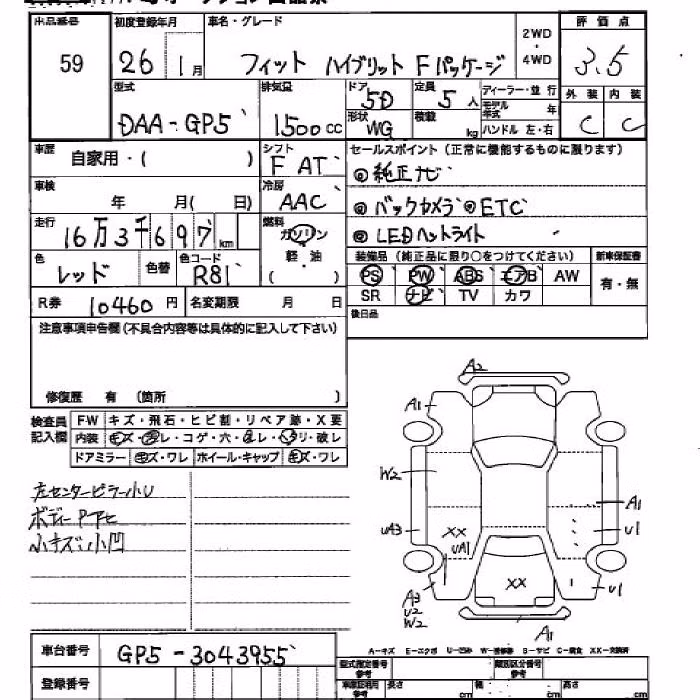 出品番号 初度登録年月 車名・グレード 2WD・4WD 評価点
59 26 1月 フィット ハイブリット Fパッケージ 3.5
型式 排気量 ドア 定員 ディーラー・並行 外装 内装
DAA-GP5 1500cc 5D 5人 モデル年式 年 C C
形状 積載 ハンドル 左・右
WG kg
車歴 自家用・( ) シフト F AT セールスポイント(正常に機能するものに限ります)
◎純正ナビ
車検 年 月( 日) 冷房 AAC ◎バックカメラ ◎ETC
走行 16万3千697km 燃料 ガソリン ◎LEDヘットライト
軽・油
( )
色 レッド 色替 色コード R81 装備品(純正品に限り○をつけてください) 新車保証書
PS PW ABS エアB AW 有・無
R券 10460円 名変期限 月 日 SR ナビ TV カワ
注意事項申告欄(不具合内容等は具体的に記入して下さい) 後日品
修復歴 有 (箇所 )
検査員記入欄 FW キズ・飛石・ヒビ割・リペア跡・X要
内装 キズ・ レ・コゲ・穴・ レ・ リ・破レ
ドアミラー キズ・ワレ ホイール・キャップ キズ・ワレ
左センターピラー小U
ボディーPキヒ
小キズ小凹
A2
A1
W2
A1
UA3
XX
UA1
U1
XX
A3
U2
W2
U1
A1
A-キズ E-エクボ U-凹み W-補修跡 S-サビ C-腐食 XX-交換済
車台番号 GP5-3043955 型式指定番号 参考 類別区分番号 参考
登録番号 車庫証明用 参考 長さ cm 幅 cm 高さ cm